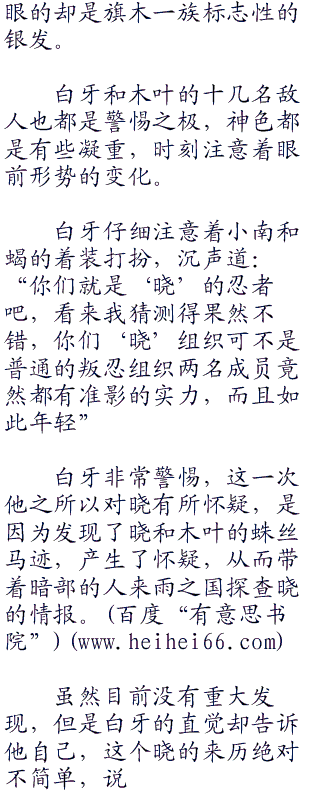 眼的却是旗木一族标志性的
银发。
白牙和木叶的十几名敌
人也都是警惕之极，神色都
是有些凝重，时刻注意着眼
前形势的变化。
白牙仔细注意着小南和
蝎的着装打扮，沉声道：
“你们就是‘晓’的忍者
吧，看来我猜测得果然不
错，你们‘晓’组织可不是
普通的叛忍组织两名成员竟
然都有准影的实力，而且如
此年轻”
白牙非常警惕，这一次
他之所以对晓有所怀疑，是
因为发现了晓和木叶的蛛丝
马迹，产生了怀疑，从而带
着暗部的人来雨之国探查晓
的情报。(百度“有意思书
院”)(www.heihei66.com)
虽然目前没有重大发
现，但是白牙的直觉却告诉
他自己，这个晓的来历绝对
不简单，说